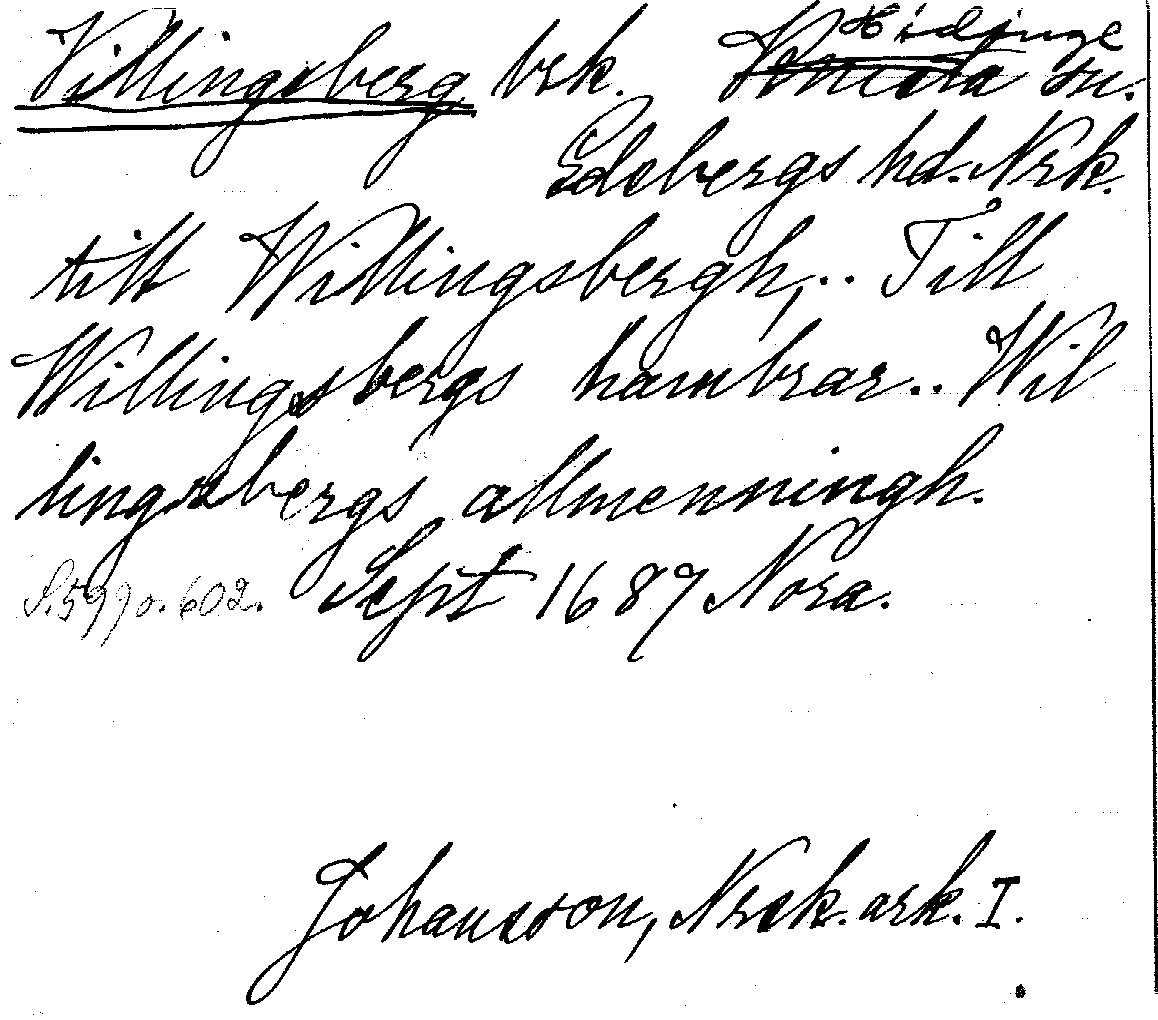 Villingsberg brk. Hidinge sn.
Edsbergs hd. Nrk.
till Willingsbergh,.. Till
Willingsbergs hambrar.. Wil
lingsbergs allmenningh.
S. 599 o. 602. Sept 1687 Nora.
Johansson, Nrsk. ark. I.